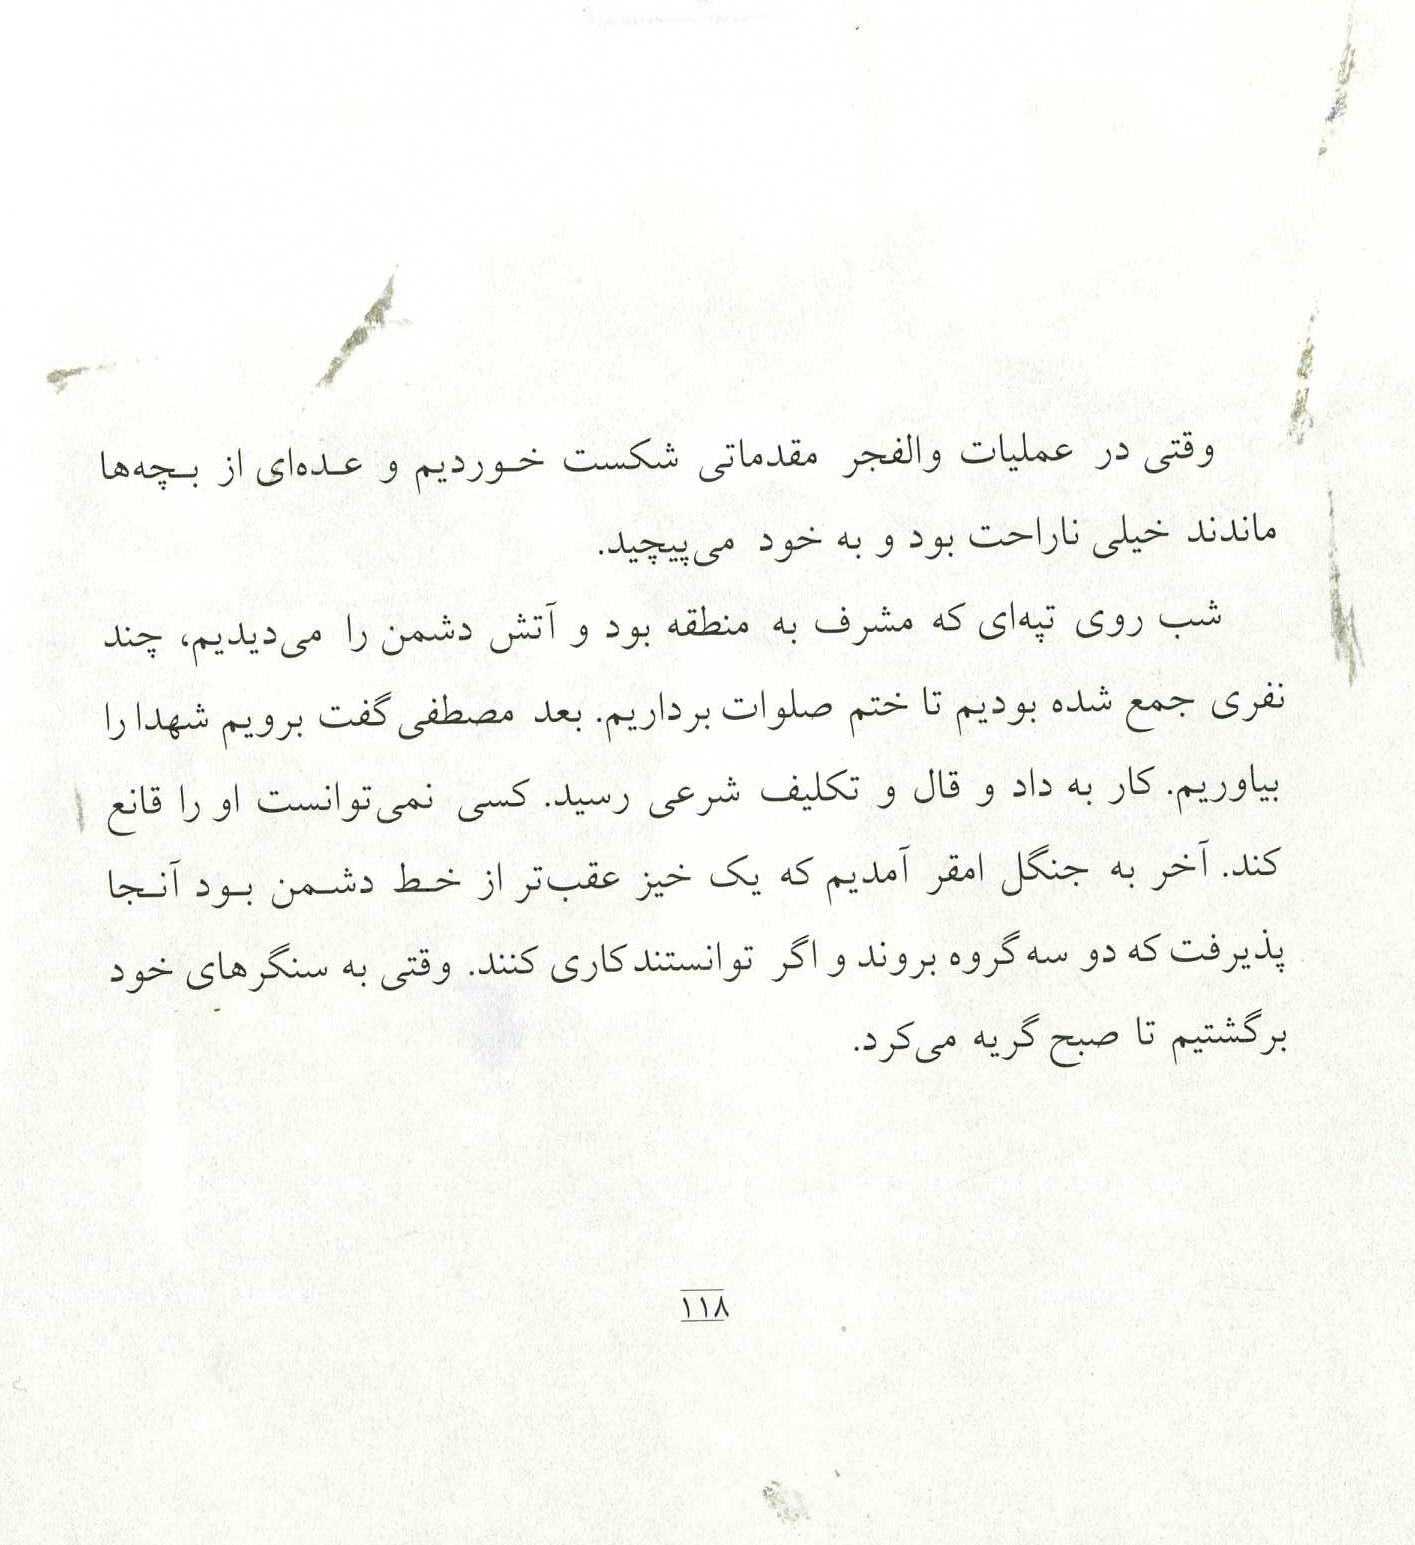 وقتی در عملیات والفجر مقدماتی شکست خوردیم و عده‌ای از بچه‌ها
ماندند خیلی ناراحت بود و به خود می‌پیچید.
شب روی تپه‌ای که مشرف به منطقه بود و آتش دشمن را می‌دیدیم، چند
نفری جمع شده بودیم تا ختم صلوات برداریم. بعد مصطفی گفت برویم شهدا را
بیاوریم. کار به داد و قال و تکلیف شرعی رسید. کسی نمی‌توانست او را قانع
کند. آخر به جنگل امقر آمدیم که یک خیز عقب‌تر از خط دشمن بود آنجا
پذیرفت که دو سه گروه بروند و اگر توانستند کاری کنند. وقتی به سنگرهای خود
برگشتیم تا صبح گریه می‌کرد.
۱۱۸